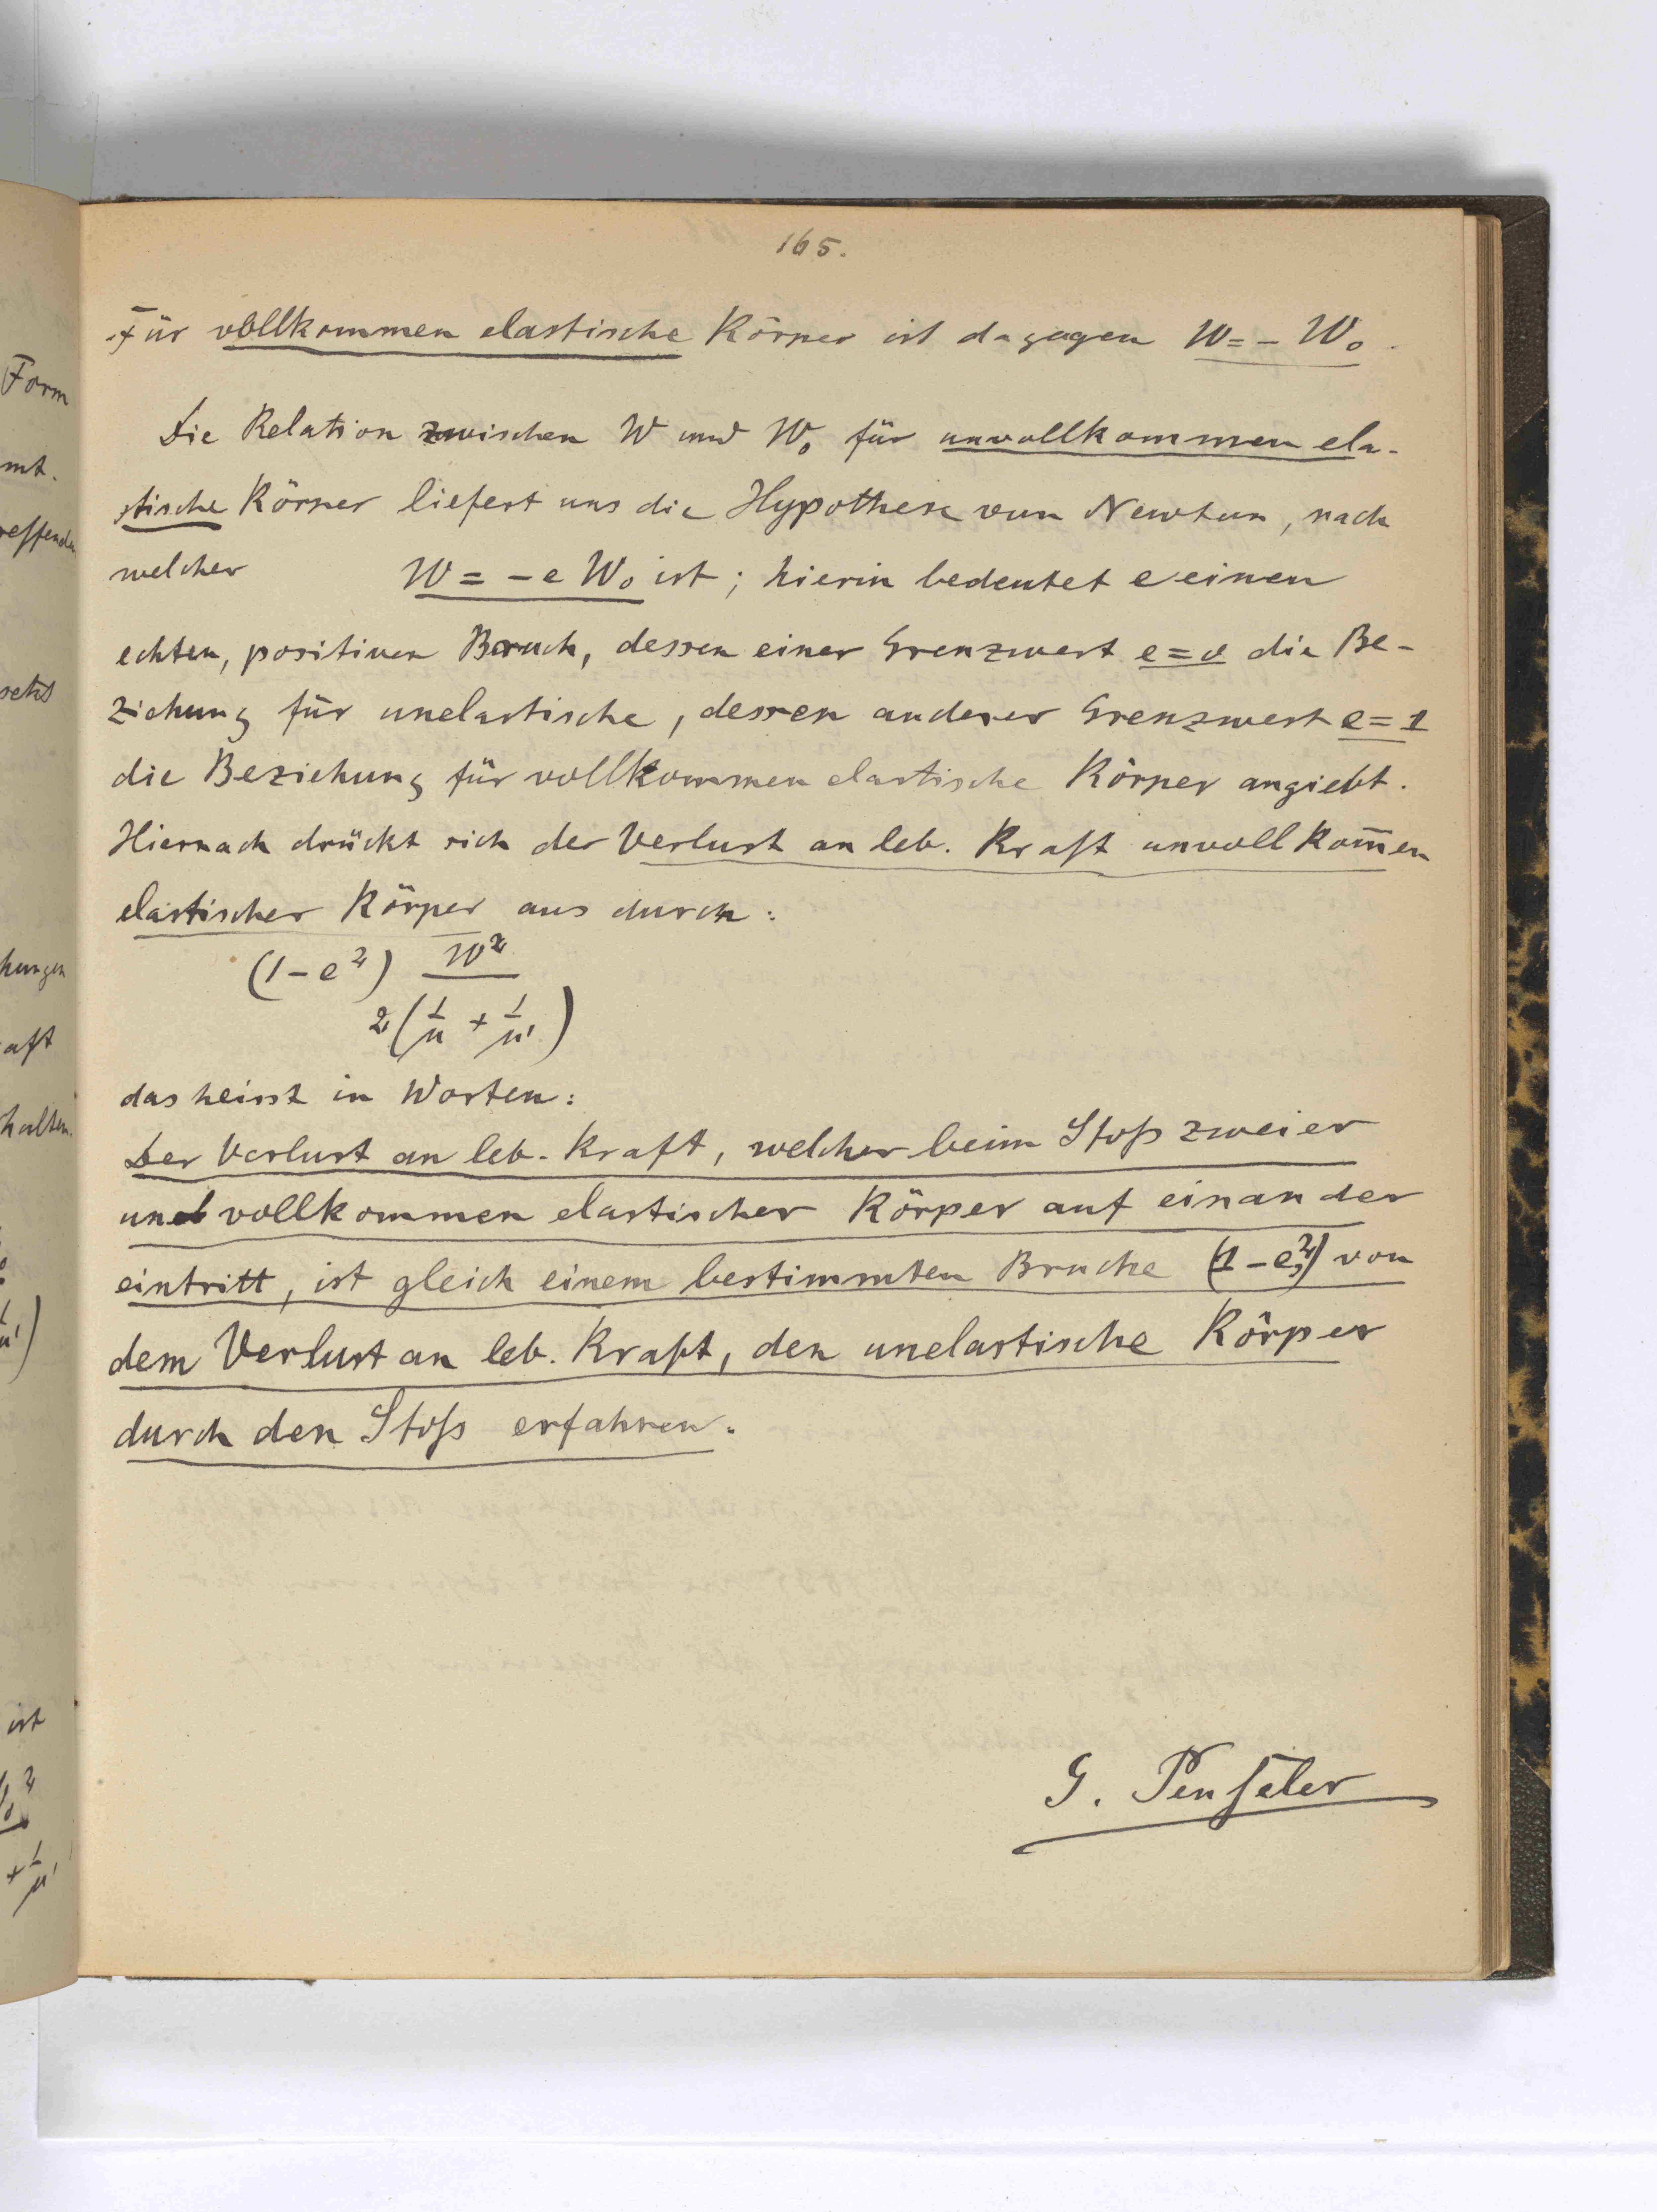 165.
Für vollkommen elastische Körper ist dagegen W = - W₀.
Die Relation zwischen W und W₀ für unvollkommen ela-
stische Körper liefert uns die Hypothese von Newton, nach
welcher W = - e W₀ ist; hierin bedeutet e einen
echten, positiven Bruch, dessen einer Grenzwert e = 0 die Be-
ziehung für unelastische, dessen anderer Grenzwert e = 1
die Beziehung für vollkommen elastische Körper angiebt.
Hiernach drückt sich der Verlust an leb. Kraft unvollkom̅en
elastischer Körper aus durch:
(1 - e²) W²
2 (1/μ + 1/μ')
das heisst in Worten:
Der Verlust an leb. Kraft, welcher beim Stoß zweier
unvollkommen elastischer Körper auf einander
eintritt, ist gleich einem bestimmten Bruche (1 - e²) von
dem Verlust an leb. Kraft, den unelastische Körper
durch den Stoß erfahren.
G. Penseler
Form
mt.
reffenden
setzt
hungen
aft
halten.
μ')
ist
2
+ 1/μ'